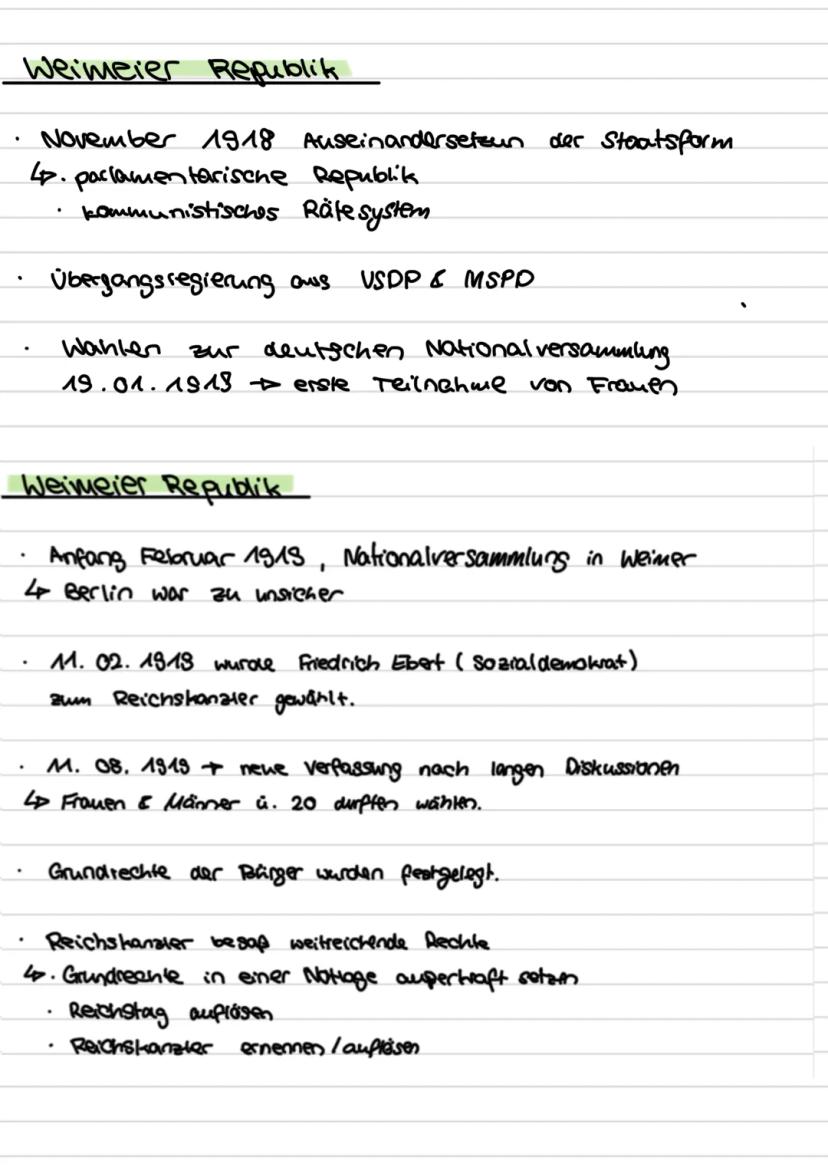 Weimeier Republik
· November 1918 Auseinandersetzun der Staatsform
↳ · parlamentarische Republik
· kommunistisches Rätesystem
· Übergangsregierung aus USDP & MSPD
· Wahlen zur deutschen Nationalversammlung
19.01.1919 → erste Teilnahme von Frauen
Weimeier Republik
· Anfang Februar 1919, Nationalversammlung in Weimer
↳ Berlin war zu unsicher
· 11. 02. 1919 wurde Friedrich Ebert (Sozialdemokrat)
zum Reichskanzler gewählt.
· 11. 08. 1919 → neue Verfassung nach langen Diskussionen
↳ Frauen & Männer ü. 20 durften wählen.
· Grundrechte der Bürger wurden festgelegt.
· Reichskanzler besaß weitreichende Rechte
↳ · Grundrechte in einer Notlage außerkraft setzen
· Reichstag auflösen
· Reichskanzler ernennen / auflösen